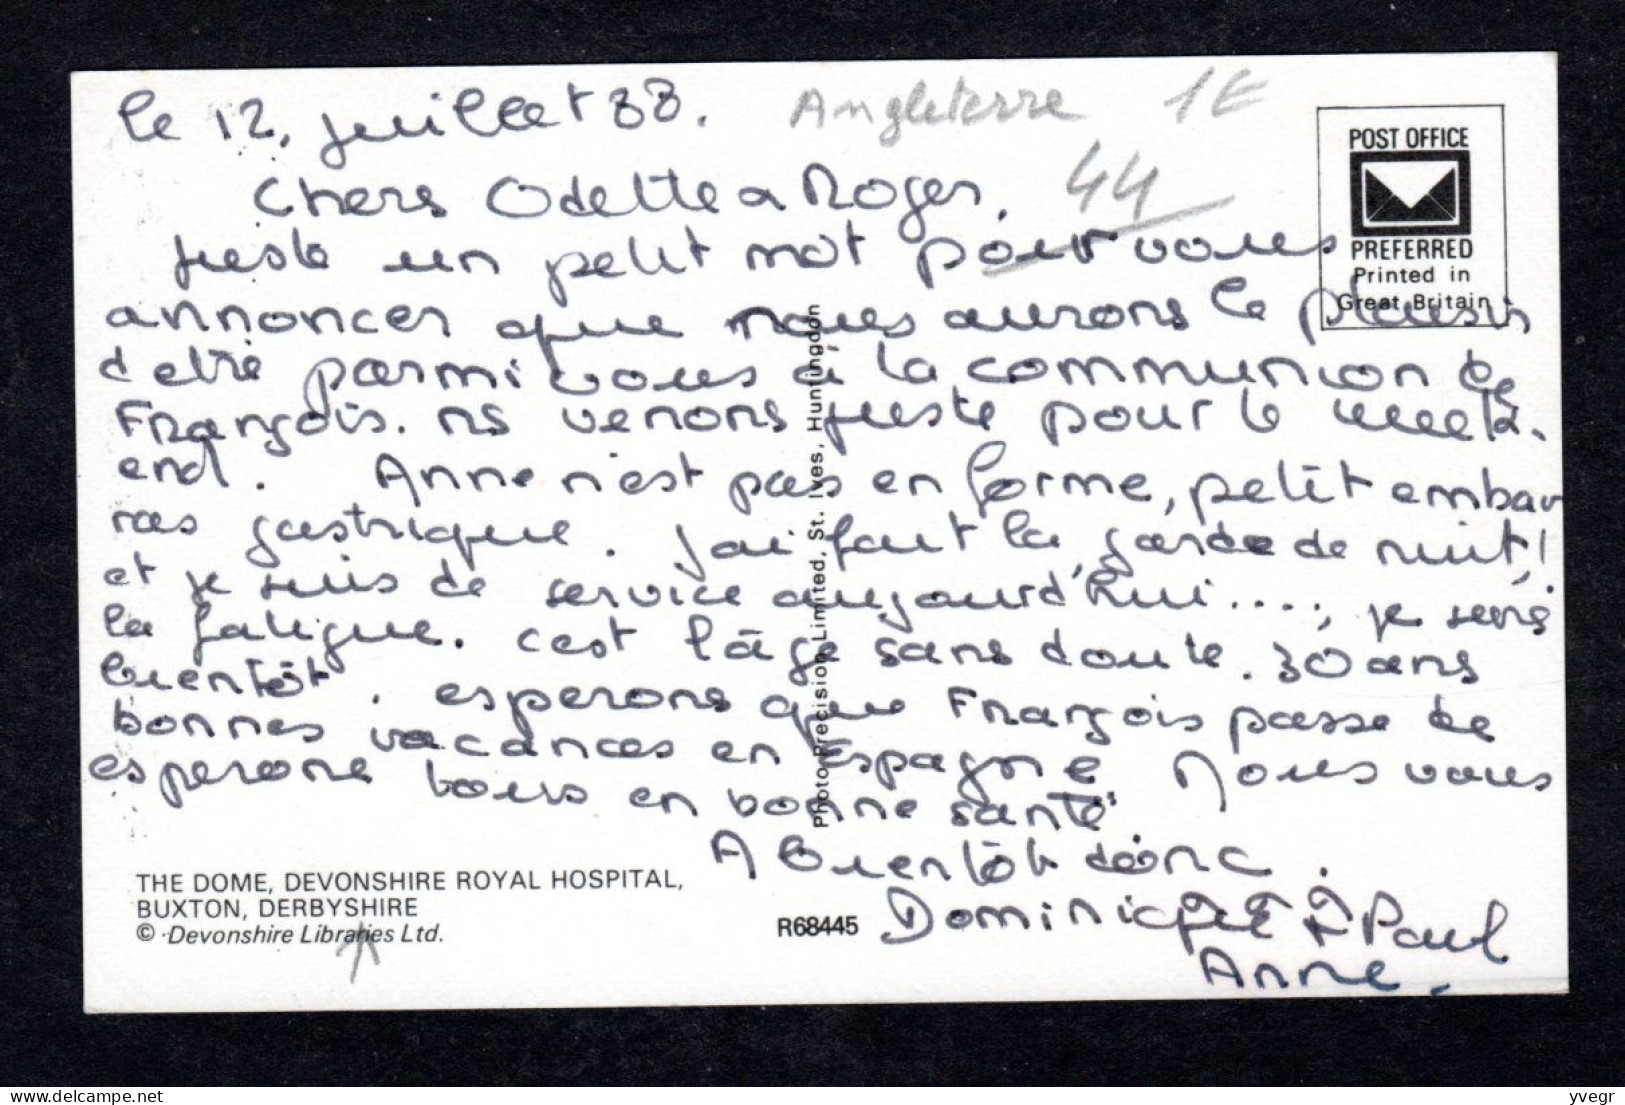 le 12, juillet 88.
Angleterre 1E
44
Chers Odette & Roger,
juste un petit mot pour vous
annoncer que nous aurons le plaisir
d'etre parmi vous à la communion de
François. ns venons juste pour le week.
end. Anne n'est pas en forme, petit embar
ras gastrique. J'ai fait la garde de nuit,!
et je suis de service aujourd'hui...., je sens
la fatigue. c'est l'âge sans doute. 30 ans
bientôt. esperons que François passe de
bonnes vacances en Espagne Nous vous
esperons tous en bonne santé.
A bientôt donc.
Dominique & Paul
Anne.
POST OFFICE
PREFERRED
Printed in
Great Britain
Photo Precision Limited, St. Ives, Huntingdon
THE DOME, DEVONSHIRE ROYAL HOSPITAL,
BUXTON, DERBYSHIRE
© Devonshire Libraries Ltd.
R68445
delcampe.net
yvegr